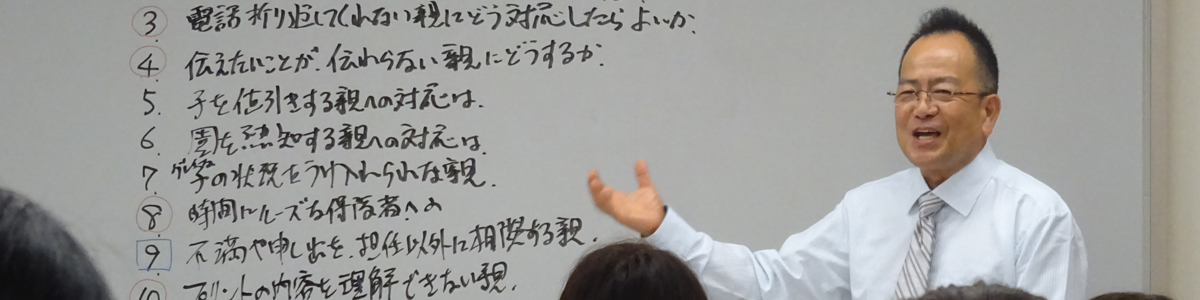 ③ 電話折り返してくれない親にどう対応したらよいか.
④ 伝えたいことが、伝わらない親にどうするか.
5. 子を値引きする親への対応は.
6 園を熟知する親への対応は.
7 子の状況をうけ入れられな親.
⑧ 時間にルーズな保護者への
9 不満や申し出を、担任以外に相談する親.
10 プリントの内容を理解できない親.